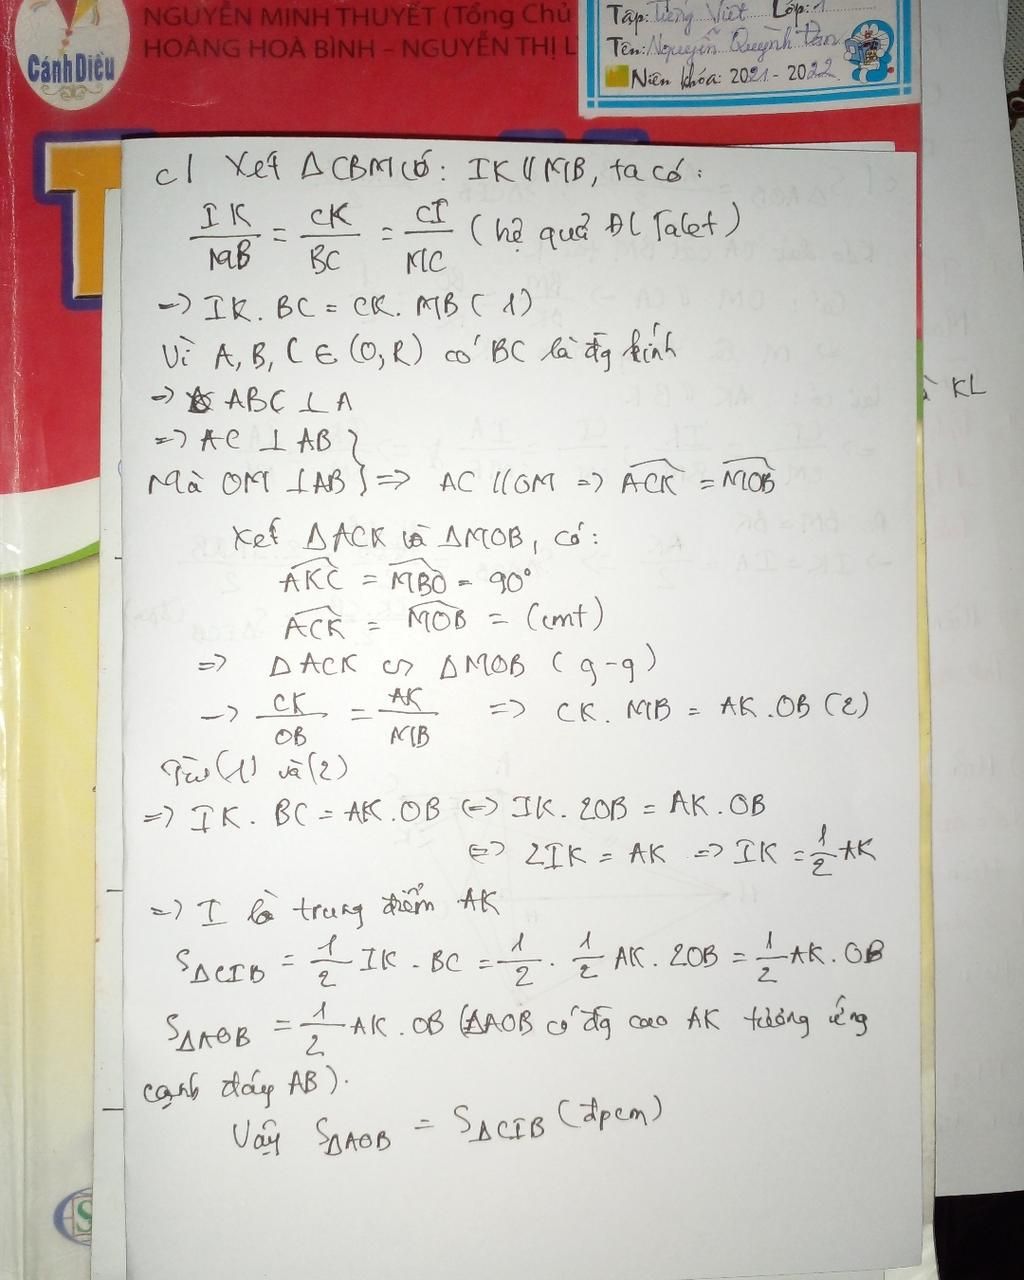 NGUYỄN MINH THUYẾT (Tổng Chủ
HOÀNG HOÀ BÌNH – NGUYỄN THỊ L
Cánh Diều
Tập: Tiếng Việt Lớp: 1
Tên: Nguyễn Quỳnh Đan
Niên khóa: 2021 - 2022
T
c) Xét ΔCBM có: IK // MB, ta có:
IK/MB = CK/BC = CI/MC (hệ quả ĐL Talet)
=> IK. BC = CK. MB (1)
Vì A, B, C ∈ (O, R) có BC là đg kính
=> Δ ABC ⊥ A
=> AC ⊥ AB
Mà OM ⊥ AB } => AC // OM => ACK^ = MOB^
Xét ΔACK và ΔMOB, có:
AKC^ = MBO^ = 90°
ACK^ = MOB^ = (cmt)
=> ΔACK ∽ ΔMOB (g-g)
-> CK/OB = AK/MB => CK. MB = AK. OB (2)
Từ (1) và (2)
=> IK. BC = AK. OB <=> IK. 2OB = AK. OB
<=> 2IK = AK => IK = 1/2 AK
=> I là trung điểm AK
SΔCIB = 1/2 IK. BC = 1/2 . 1/2 AK. 2OB = 1/2 AK. OB
SΔAOB = 1/2 AK. OB (ΔAOB có đg cao AK tương ứng
cạnh đáy AB).
Vậy SΔAOB = SΔCIB (đpcm)
KL
S